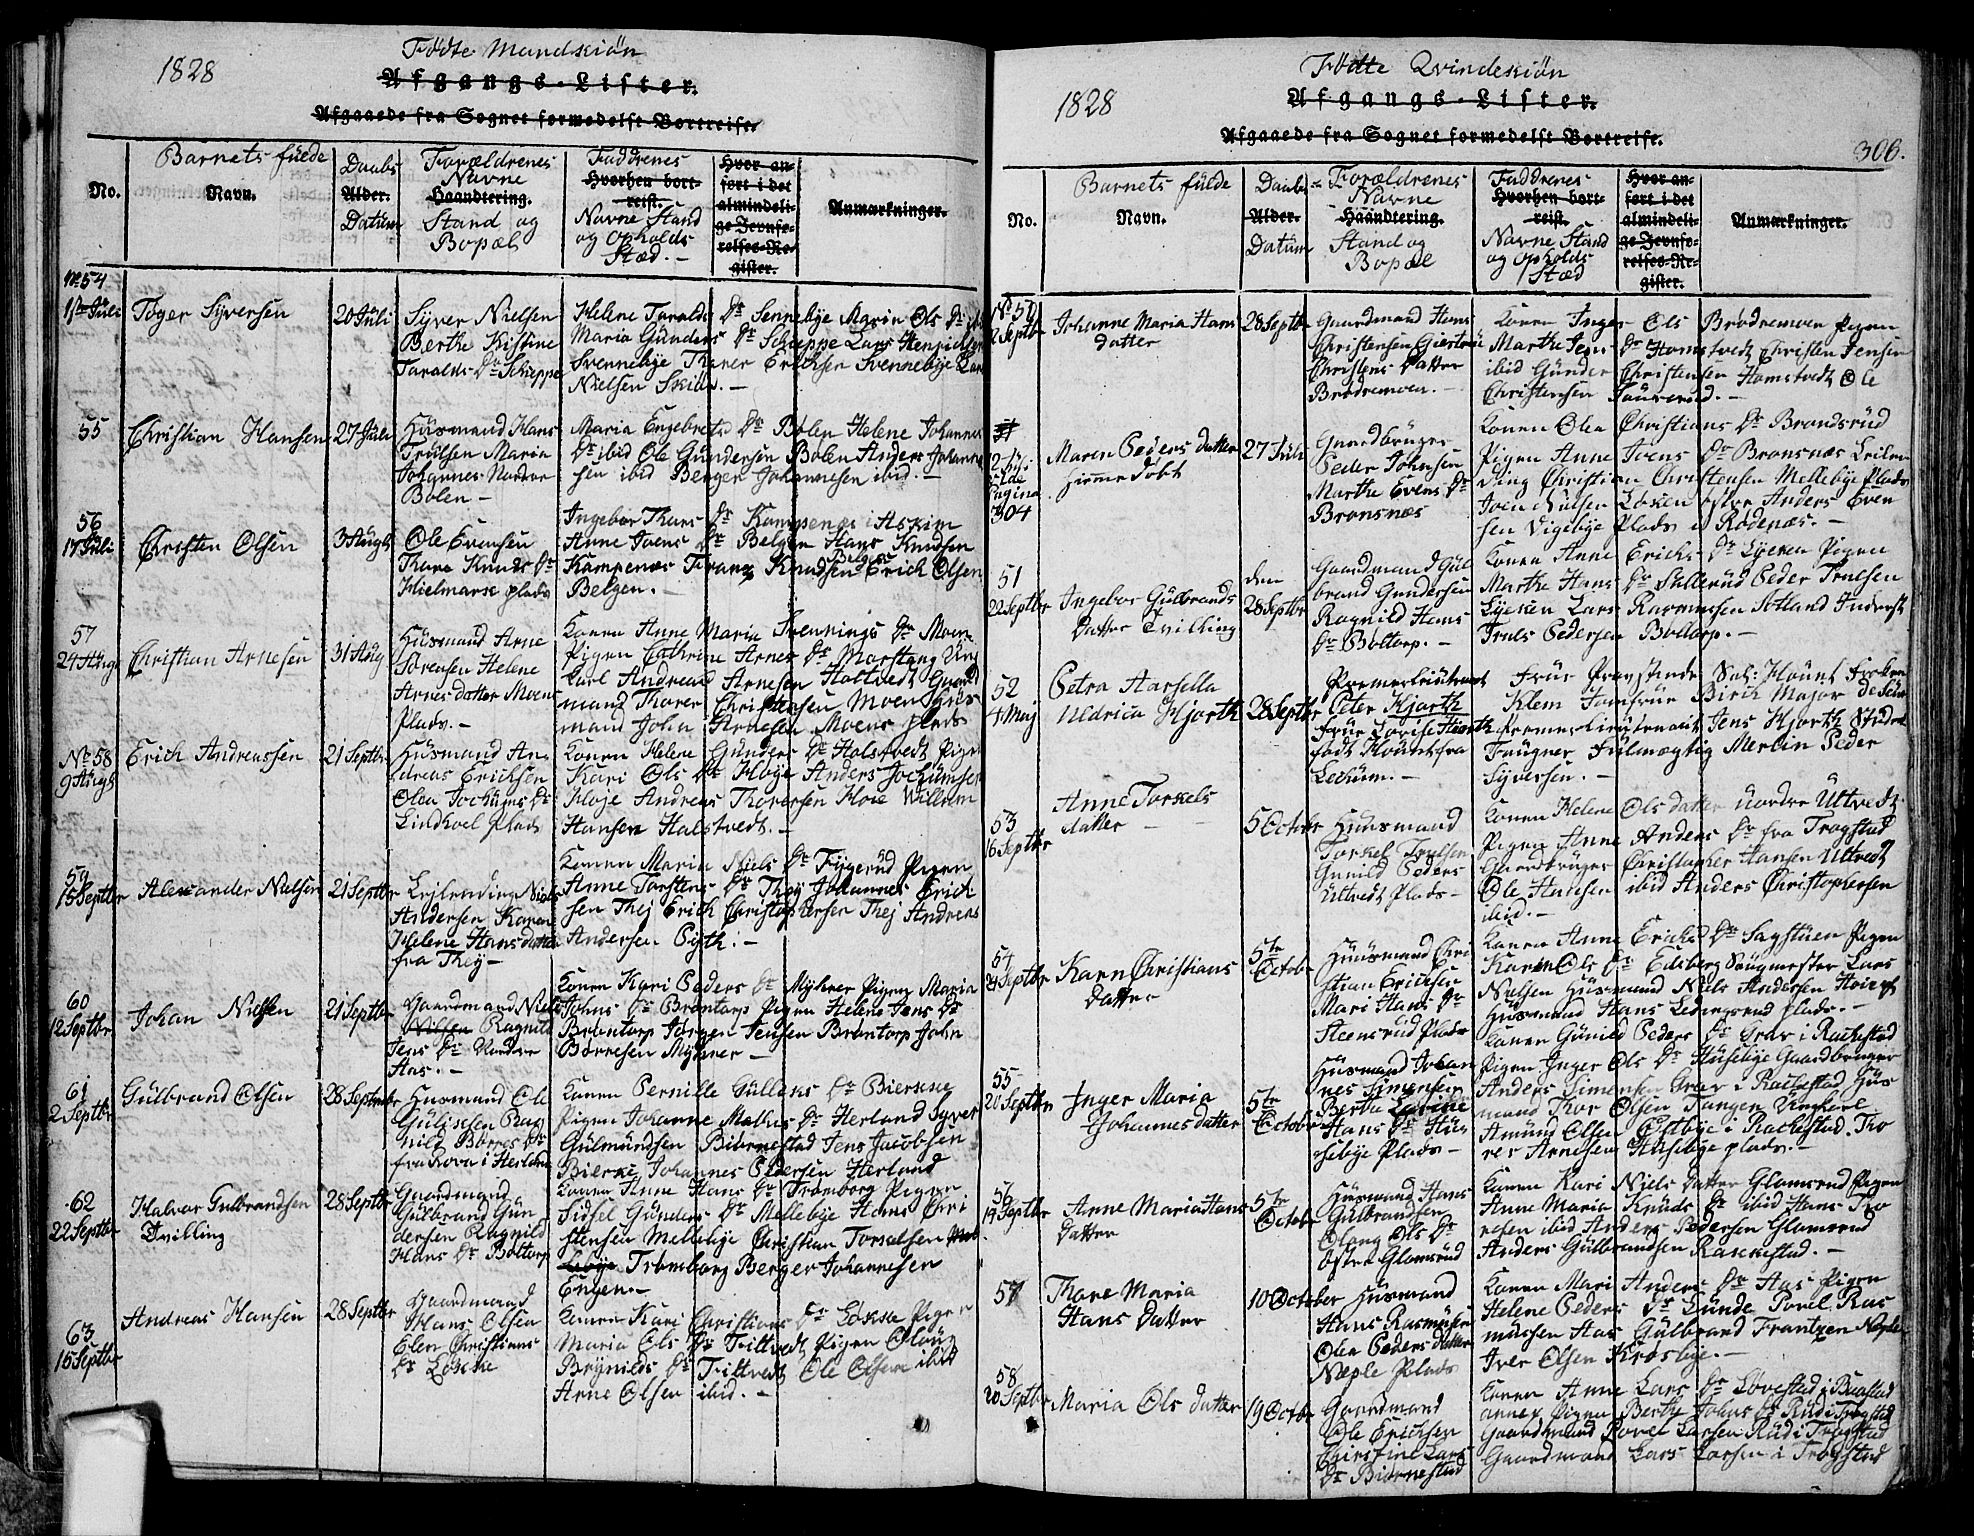 1828
Fødte Mandkiøn
Afgangs-Lister.
Afgaaede fra Sognet formedelst Bortreise.
No.
Barnets fulde
Navn.
Daabs
Alder.
Datum
Forældrenes
Navne
Haandtering.
Stand og
Bopæl
Faddrenes
Hvorhen bort-
reist.
Navne Stand
og Opholds
Stæd. -
Hvor an-
ført i det
almindeli-
ge Jevnfø-
relses-Re-
gister.
Anmærkninger.
No 54
1ste Juli
Toger Syversen
20 Juli
Syver Nielsen
Berthe Kistine
Taralds Dr Schieppe
Helene Taralds Dr Sennebye Maria Ols Dr
Maria Gunders Dr Schieppe Lars Henrichsen
Svennebye Thorer Ericksen Svennebye Lars
Nielsen Skibs. -
55
Christian Hansen
27 Juli
Husmand Hans
Trulsen Maria
Johannes Nordre
Bølen -
Maria Engebrets Dr Bølen Helene Johannes
Dr ibid Ole Gundersen Bølen Anders Johanne
sen ibid Berger Johannesen ibid. -
56
17 Juli
Christen Olsen
3 Augt
Ole Evensen
Thare Knuds Dr
Hielmarse plads
Ingebor Thars Dr Kampenæs i Askim
Anne Ivens Dr Belgen Hans Knudsen
Kampenæs Franz Knudsen Belgen Erich Olsen
Belgen. -
57
24 Augt
Christian Arnesen
31 Aug
Husmand Arne
Sørensen Helene
Arnes datter Moens
Plads. -
Konen Anne Maria Svennings Dr Moen
Pigen Cathrine Arnes Dr Marstang Ung
Karl Andreas Arnesen Holtvedt Gaard
mand Thorer Christensen Moen Hus
mand John Arnesen Moens plads
No 58
9 Augt
Erich Andreassen
21 Septbr
Husmand An
dreas Ericksen
Olea Jochums Dr
Lindhoel plads
Konen Helene Gunders Dr Holstvedt Pigen
Kari Ols Dr Høye Anders Jochumsen
Høje Andreas Thoresen Høie Willum
Hansen Halstvedt. -
59
15 Septbr
Alexander Nielsen
21 Septbr
Leilending Niels
Andersen Karen
Helene Hans datter
fra Thej -
Konen Maria Niels Dr Fyggerud Pigen
Anne Torstens Dr Thej Johannes Erich
sen Thej Erich Christophersen Thej Andreas
Andersen Gyth. -
60
12 Septbr
Johan Nielsen
21 Septbr
Gaardmand Niels
Nilsen Ragnild
Jens Dr Nordre
Aas. -
Konen Kari Peders Dr Myhrer Pigen Maria
Johns Dr Brøntorp Pigen Helene Jens Dr
Brøntorp Jørgen Jensen Brøntorp John
Børresen Myhrer -
61
2 Septbr
Gulbrand Olsen
28 Septembr
Husmand Ole
Gulissen Rag
nild Børres Dr
fra Rova i Herland
Konen Pernille Gullens Dr Bierkne
Pigen Johanne Mathis Dr Herland Syver
Gulmundsen Biørnestad Jens Jacobsen
Bierke Johannes Pedersen Herland
62
22 Septbr
Halvor Gulbrandsen
Tvilling
28 Septbr
Gaardmand
Gulbrand Gun
dersen Ragnild
Hans Dr Bøltorp
Konen Anne Hans Dr Trømborg Pigen
Sidsel Gunders Dr Mellebye Hans Chri
stensen Mellebye Christian Torkelsen Mel
lebye Trømborg Berger Johannesen
Engen. -
63
15 Septbr
Andreas Hansen
28 Septbr
Gaardmand
Hans Olsen
Elen Christians
Dr Løkke
Konen Kari Christians Dr Løkke Pigen
Maria Ols Dr Tiltvedt Pigen Oloug
Brynilds Dr Tiltvedt Ole Olsen ibid
Arne Olsen ibid. -
1828
Fødte Qvindekiøn
Afgangs-Lister.
Afgaaede fra Sognet formedelst Bortreise.
306.
No.
Barnets fulde
Navn.
Daabs
Alder.
Datum
Forældrenes
Navne
Haandtering.
Stand og
Bopæl
Faddrenes
Hvorhen bort-
reist.
Navne Stand
og Opholds
Stæd
Hvor an-
ført i det
almindeli-
ge Jevnfø-
relses-Re-
gister.
Anmærkninger.
No 50
2 Septbr
Johanne Maria Hans
datter
28 Septbr
Gaardmand Hans
Christensen Giertrue
Christens Datter
Brødremoen. -
Konen Inger Ols Brødremoen Pigen
Marthe Jens Dr Homstvedt Christen Jensen
ibid Gunder Christensen Homstvedt Ole
Christensen Taurerud. -
2 Juli
vide
Pagina
304
Maren Peders datter
hjemmedøbt
27 Juli
Gaardbruger
Peder Johnsen
Marthe Evens Dr
Bronsnæs
Konen Olea Christians Dr Brandsrud
Pigen Anne Ivens Dr Bronsnæs Leilen
ding Christian Christensen Mellebye Plads
Iven Nielsen Løken østre Anders Even
sen Vigebye Plads i Rødenæs. -
51
22 Septbr
Ingebor Gulbrands
Datter Tvilling
den
28 Septbr
Gaardmand Gul
brand Gundersen
Ragnild Hans
Dr Bøltorp. -
Konen Anne Erichs Dr Lycken Pigen
Marthe Hans Dr Sallerud Peder Truesen
Lycken Lars Rasmussen Sotland Inderst
Truls Pedersen Bøltorp. -
52
4 Maj
Petra Harsella
Uldrica Hjorth
28 Septbr
Premierleutnant
Peter Hjorth
Frue Lovise Hiorth
født Klount fra
Lechum. -
Frue Provstinde Sal: Hount Frøken
Klem Jomfrue Birch Major de Seue
Premierleutenant Jens Hjorth Studen
Faugner Fulmægtig Merlin Peder
Syversen. -
53
16 Septbr
Anne Torkels
datter -
5 October
Huusmand
Torkel Truelsen
Gunild Peders
Ultvedt Plads -
Konen Helene Ols datter nordre Ultvedt
Pigen Anne Anders Dr fra Trøgstad
Gaardbruger Christopher Hansen Ultvedt
Ole Hansen ibid Anders Christophersen
ibid. -
54
24 Septbr
Karn Christians
Datter
5te
October
Huusmand Chri
stian Ericksen
Mari Hans Dr
Steensrud Plads
Konen Anne Ericks Dr Sagstuen Pigen
Karen Ols Dr Edsberg Saugmester Lars
Nielsen Husmand Niels Andersen Høiegt
Husmand Hans Ledingsrud plads. -
55
20 Septbr
Inger Maria
Johannes datter
5te
October
Husmand Johan
nes Simensen
Bertha Lovine
Hans Dr Hus
sebye Plads -
Konen Gunild Peders Dr Grav i Rackestad
Pigen Inger Ols Dr Husebye Gaardbruger
Anders Simensen Grav i Rackestad Hus
mand Thor Olsen Tangen Ungkarl
Amund Olsen Østbye i Rackestad. Tho
rer Arnesen Husebye plads. -
56
19 Septbr
Anne Maria Hans
Datter
5te
October
Husmand Hans
Gulbrandsen
Oloug Ols Dr
Østre Glomsrud
Konen Kari Niels datter Glomsrud Pigen
Anne Maria Knuds Dr ibid Hans Tho
resen ibid Anders Pedersen Glomsrud
Anders Gulbrandsen Rakkestad. -
57
Thare Maria
Hans Datter
10 October
Husmand
Hans Rasmusen
Olea Peders datter
Næple Plads
Konen Mari Anders Dr Aas Pigen
Helene Peders Dr Lunde Povel Ras
mussen Aas Gulbrand Frantzen Næple
Iver Olsen Krosbye. -
58
20 Septbr
Maria Ols datter
19 Octbr
Gaardmand
Ole Ericksen
Chirstine Lars
Dr Biørnestad
Konen Anne Lars Dr Lovestad i Baastad
annex Pigen Berthe Johns Dr Rud i Trøgstad
Gaardmand Povel Larsen Rud i Trøgstad
Gaardmand Lars Larsen i Trøgstad